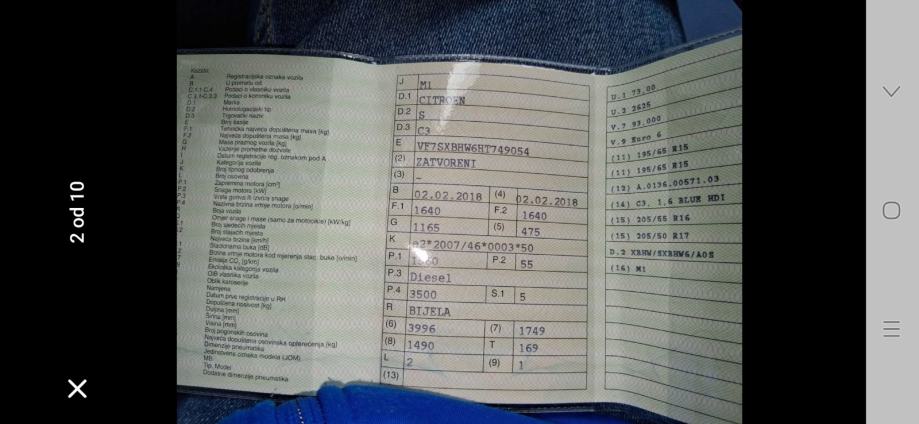 2 od 10
Kazalo:
A Registracijska oznaka vozila
B U prometu od
C.1.1-C.4 Podaci o vlasniku vozila
C.3.1-C.3.3 Podaci o korisniku vozila
D.1 Marka
D.2 Homologacijski tip
D.3 Trgovački naziv
E Broj šasije
F.1 Tehnička najveća dopuštena masa [kg]
F.2 Najveća dopuštena masa [kg]
G Masa praznog vozila [kg]
H Važenje prometne dozvole
I Datum registracije reg. oznakom pod A
J Kategorija vozila
K Broj tipnog odobrenja
L Broj osovina
P.1 Zapremina motora [cm³]
P.2 Snaga motora [kW]
P.3 Vrsta goriva ili izvora snage
P.4 Nazivna brzina vrtnje motora [o/min]
Boja vozila
Omjer snage i mase (samo za motocikle) [kW/kg]
Broj sjedećih mjesta
Broj stajaćih mjesta
Najveća brzina [km/h]
Stacionarna buka [dB]
Brzina vrtnje motora kod mjerenja stac. buke [o/min]
Emisija CO₂ [g/km]
Ekološka kategorija vozila
OIB vlasnika vozila
Oblik karoserije
Namjena
Datum prve registracije u RH
Dopuštena nosivost [kg]
Duljina [mm]
Širina [mm]
Visina [mm]
Broj pogonskih osovina
Najveće dopuštena osovinska opterećenja [kg]
Dimenzije pneumatika
Jedinstvena oznaka modela (JOM)
MB
Tip, Model
Dodatne dimenzije pneumatika
J M1
D.1 CITROEN
D.2 S
D.3 C3
E VF7SXBHW6HT749054
(2) ZATVORENI
(3) –
B 02.02.2018 (4) 02.02.2018
F.1 1640 F.2 1640
G 1165 (5) 475
K e2*2007/46*0003*50
P.1 P.2 55
P.3 Diesel
P.4 3500 S.1 5
R BIJELA
(6) 3996 (7) 1749
(8) 1490 T 169
L 2 (9) 1
(13)
U.1 73,00
U.2 2625
V.7 93,000
V.9 Euro 6
(11) 195/65 R15
(11) 195/65 R15
(12) A.0136.00571.03
(14) C3, 1.6 BLUE HDI
(15) 205/55 R16
(15) 205/50 R17
D.2 XBHW/SXBHW6/A05
(16) M1